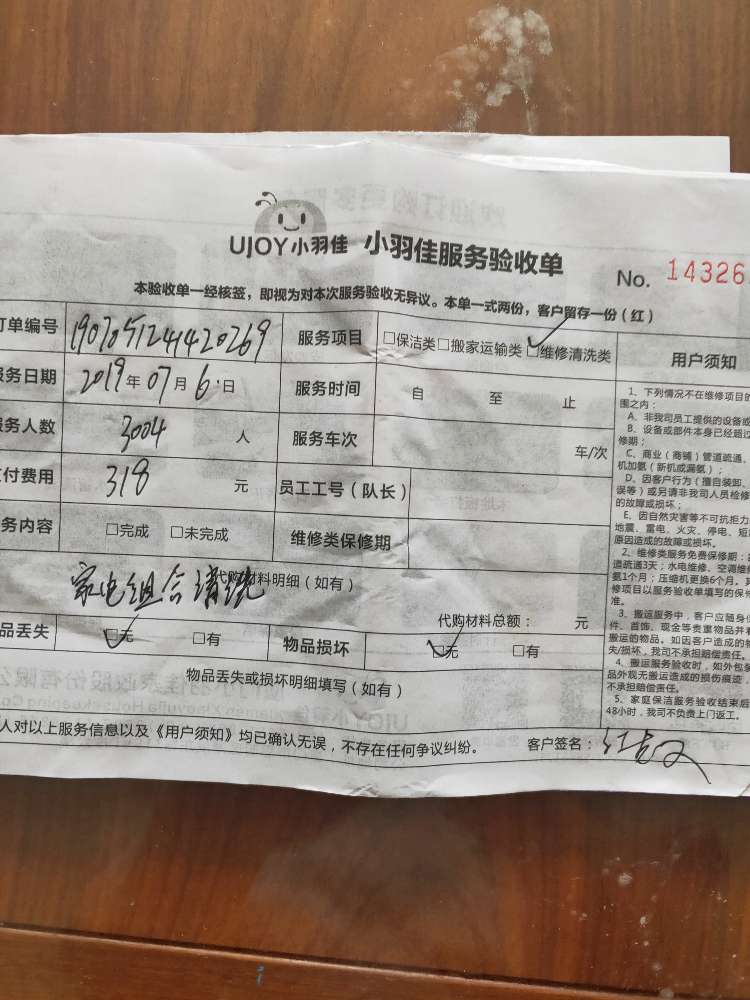 UJOY小羽佳 小羽佳服务验收单
No. 14326
本验收单一经核签，即视为对本次服务验收无异议。本单一式两份，客户留存一份（红）
订单编号 1907051241420269 服务项目 □保洁类□搬家运输类□维修清洗类 用户须知
服务日期 2019年07月6日 服务时间 自 至 止
服务人数 3004 人 服务车次 车/次
支付费用 318 元 员工工号（队长）
服务内容 □完成 □未完成 维修类保修期
家电组合清洗
代购材料明细（如有）
代购材料总额： 元
品丢失 □无 □有 物品损坏 □无 □有
物品丢失或损坏明细填写（如有）
人对以上服务信息以及《用户须知》均已确认无误，不存在任何争议纠纷。 客户签名：
1、下列情况不在维修项目的
围之内：
A、非我司员工提供的设备或
B、设备或部件本身已经超过
修期；
C、商业（商铺）管道疏通、
机加氨（新机或漏氨）；
D、因客户行为（擅自装卸、
误等）或另请非我司人员检修
的故障或损坏；
E、因自然灾害等不可抗拒力
地震、雷电、火灾、停电、短
原因造成的故障或损坏。
2、维修类服务免费保修期：
道疏通3天；水电维修、空调维
氨1个月；压缩机更换6个月。
修项目以服务验收单填写的保修
准。
3、搬运服务中，客户应随身
件、首饰、现金等贵重物品并
搬运的物品。如因客户造成的物
失/损坏，我司不承担赔偿责任。
4、搬运服务验收时，如外包装
品外观无搬运造成的损伤痕迹，
不承担赔偿责任。
5、家庭保洁服务验收结束后
48小时，我司不负责上门返工。